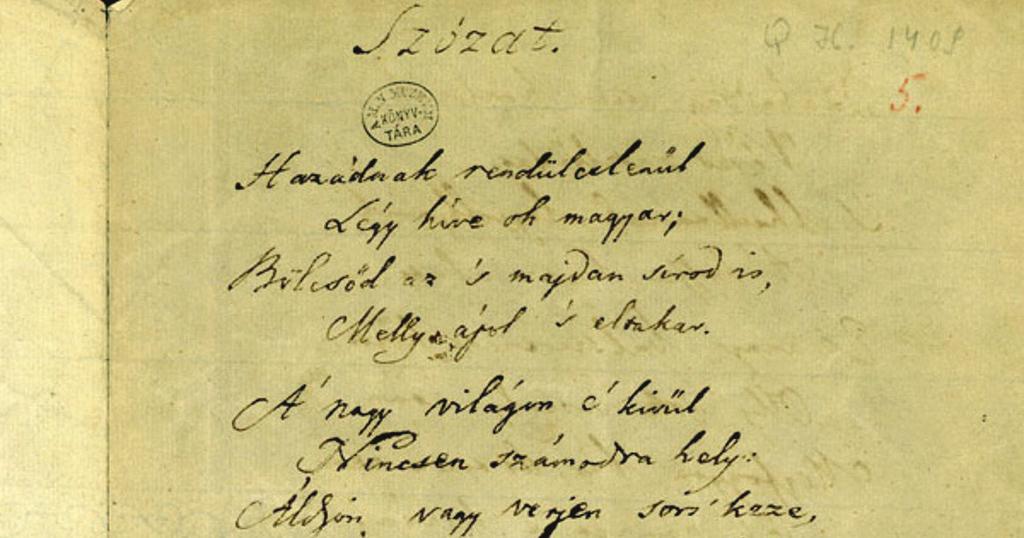 Szózat.
Q H. 1409
5.
M. N. MUZEUM
KÖNYV-
TÁRA
Hazádnak rendületlenül
Légy híve oh magyar;
Bölcsőd az 's majdan sírod is,
Melly ápol 's eltakar.
A' nagy világon e' kivül
Nincsen számodra hely:
Áldjon vagy verjen sors' keze,